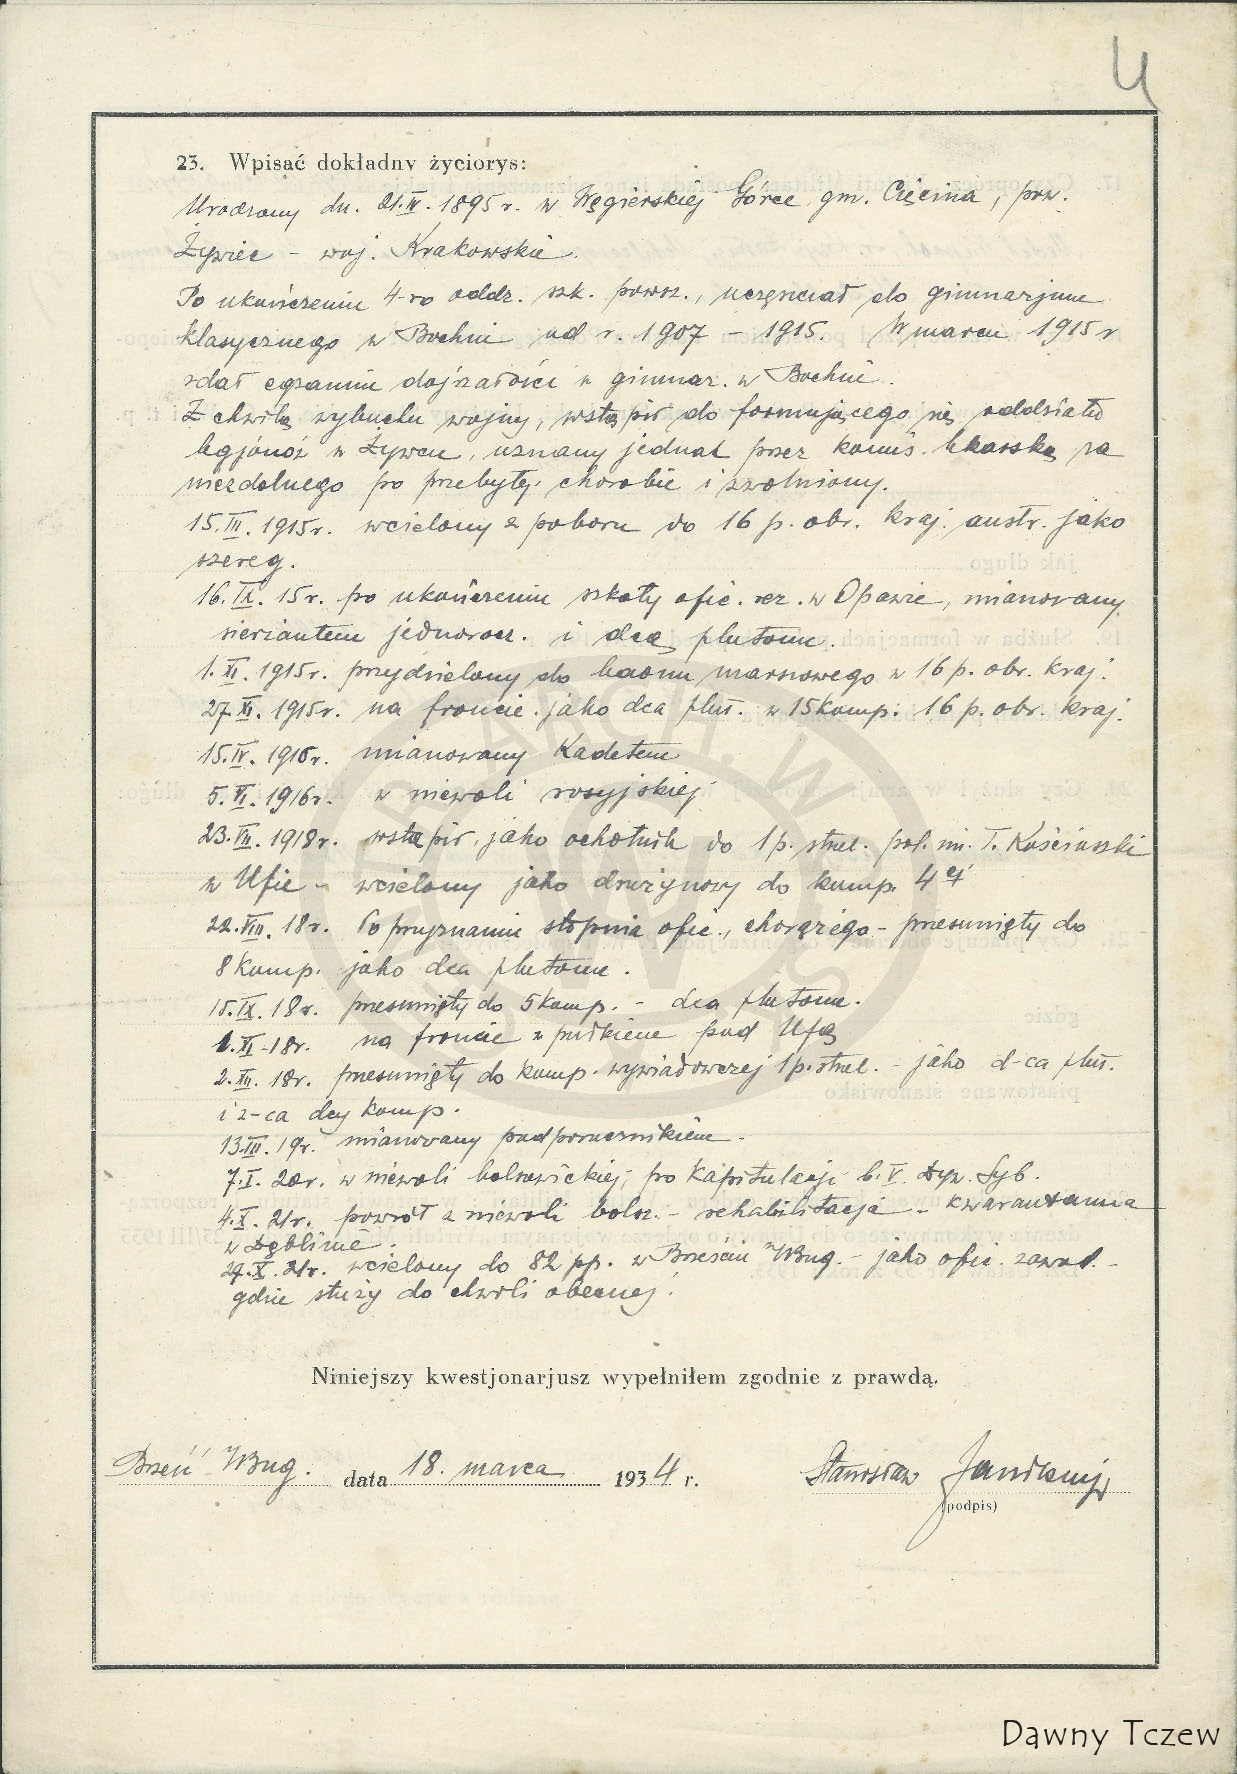 4
23. Wpisać dokładny życiorys:
Urodzony dn. 21.IV.1895 r. w Węgierskiej Górce gm. Cięcina, pow.
Żywiec – woj. Krakowskie.
Po ukończeniu 4-ro oddz. szk. powsz., uczęszczał do gimnazjum
klasycznego w Bochni od r. 1907 – 1915. W marcu 1915 r
zdał egzamin dojrzałości w gimnaz. w Bochni.
Z chwilą wybuchu wojny, wstąpił do formującego się oddziału
legjonów w Żywcu, uznany jednak przez komis. lekarską za
niezdolnego po przebytej chorobie i zwolniony.
15.III.1915 r. wcielony z poboru do 16 p. obr. kraj. austr. jako
szereg.
16.IX.15 r. po ukończeniu szkoły ofic. rez. w Opawie, mianowany
sierżantem jednorocz. i dcą plutonu.
1.XI.1915 r. przydzielony do baonu marszowego w 16 p. obr. kraj.
27.XI.1915 r. na froncie jako dca plut. w 15 komp. 16 p. obr. kraj.
15.IV.1916 r. mianowany Kadetem
5.VI.1916 r. w niewoli rosyjskiej
23.VII.1918 r. wstąpił jako ochotnik do 1 p. strzel. pol. im. T. Kościuszki
w Ufie – wcielony jako drużynowy do komp. 4ej
22.VIII.18 r. Po przyznaniu stopnia ofic., chorążego – przesunięty do
8 komp. jako dca plutonu.
15.IX.18 r. przesunięty do 5 komp. – dca plutonu.
1.XI-18 r. na froncie z pułkiem pod Ufą
2.XII.18 r. przesunięty do komp. wywiadowczej 1 p. strzel. – jako d-ca plut.
i z-ca dcy komp.
13.III.19 r. mianowany podporucznikiem –
7.I.20 r. w niewoli bolszewickiej, po kapitulacji b. V Dyw. Syb.
4.X.21 r. powrót z niewoli bolsz. – rehabilitacja – kwarantanna
w Dęblinie.
27.X.21 r. wcielony do 82 pp. w Brześciu n/Bug. – jako ofic. zawod. –
gdzie służy do chwili obecnej.
Niniejszy kwestjonarjusz wypełniłem zgodnie z prawdą.
Brześć n/Bug. data 18. marca 1934 r. Stanisław
(podpis)
Dawny Tczew